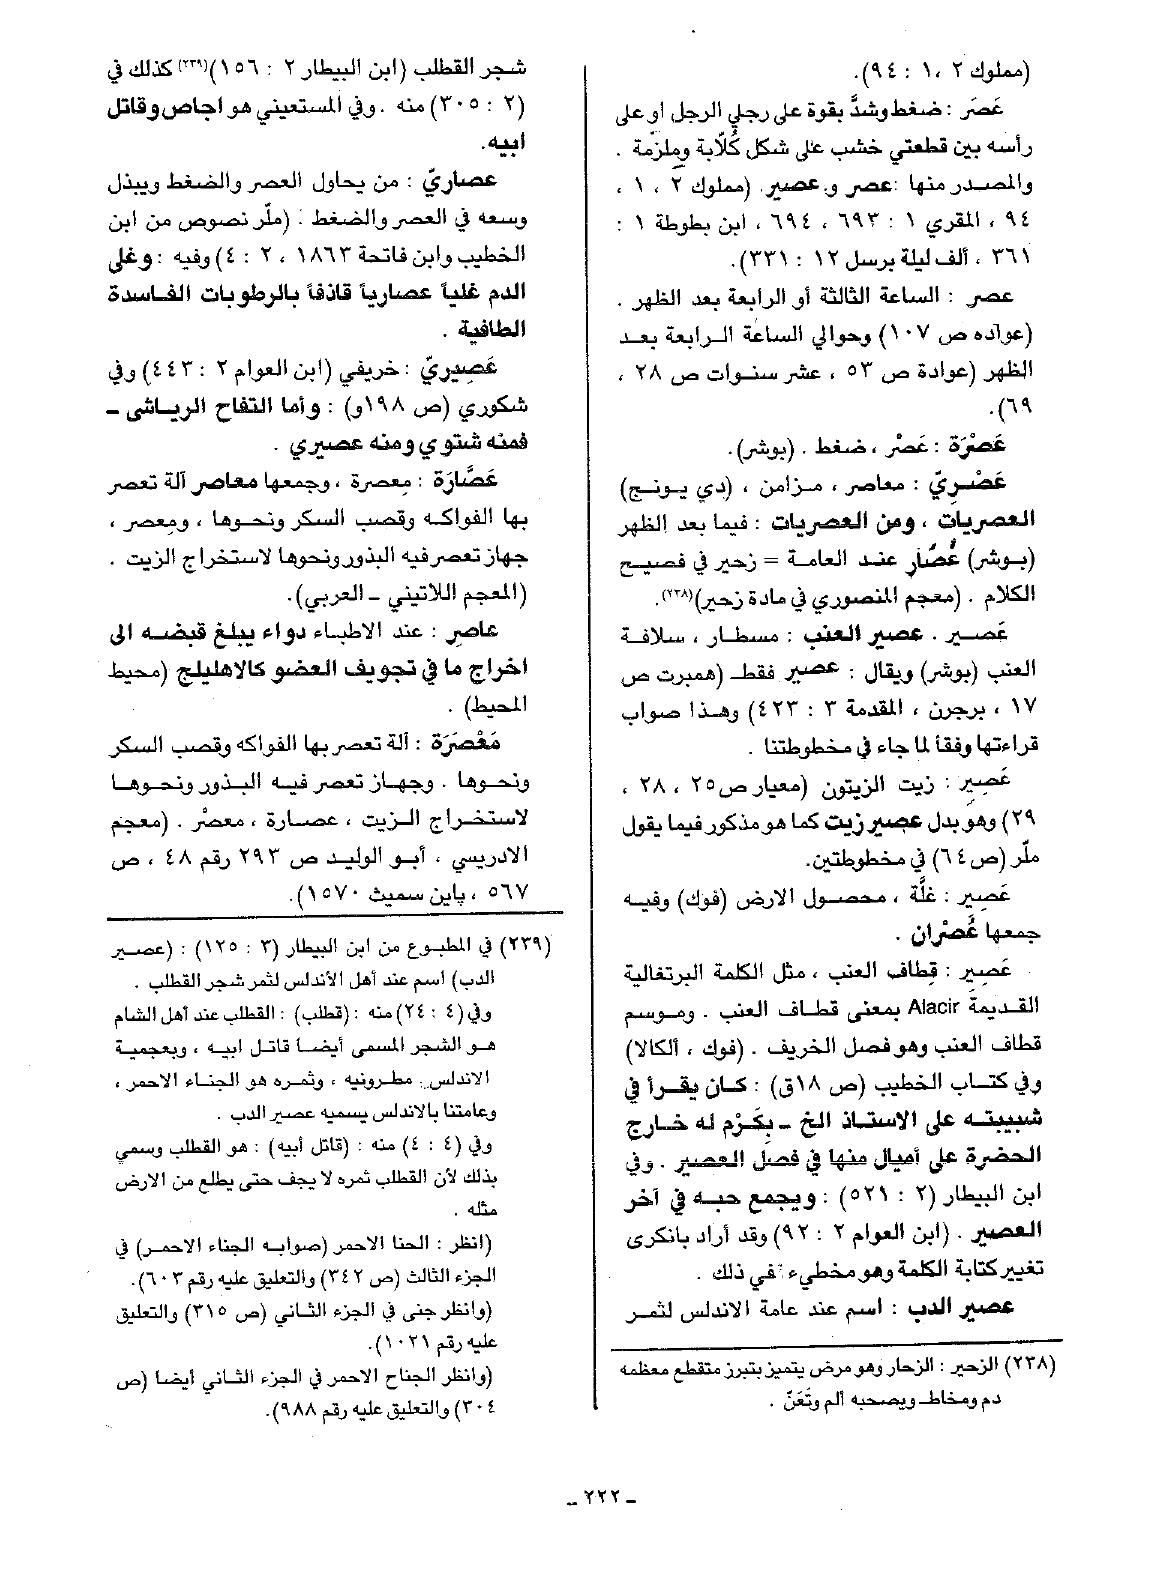 (مملوك ٢ ،١ : ٩٤).
عَصَر : ضغط وشدَّ بقوة على رجلي الرجل او على
رأسه بين قطعتي خشب على شكل كُلاّبة وملزمة .
والمصدر منها : عصر و عصير. (مملوك ٢ ، ١ ،
٩٤ ، المقري ١ : ٦٩٣ ، ٦٩٤ ، ابن بطوطة ١ :
٣٦١ ، ألف ليلة برسل ١٢ : ٣٣١).
عصر : الساعة الثالثة أو الرابعة بعد الظهر .
(عواده ص ١٠٧) وحوالي الساعة الرابعة بعد
الظهر (عوادة ص ٥٣ ، عشر سنوات ص ٢٨ ،
٦٩).
عَصْرَة : عَصْر ، ضغط . (بوشر).
عَصْرِيّ : معاصر ، مزامن ، (دي يونج)
العصريات ، ومن العصريات : فيما بعد الظهر
(بوشر) عُصَّار عند العامة = زحير في فصيح
الكلام . (معجم المنصوري في مادة زحير)(٢٣٨).
عَصير . عصير العنب : مسطار ، سلافة
العنب (بوشر) ويقال : عصير فقط (همبرت ص
١٧ ، برجرن ، المقدمة ٣ : ٤٢٣) وهذا صواب
قراءتها وفقاً لما جاء في مخطوطتنا .
عَصِير : زيت الزيتون (معيار ص ٢٥ ، ٢٨ ،
٢٩) وهو بدل عصير زيت كما هو مذكور فيما يقول
ملّر (ص ٦٤) في مخطوطتين.
عَصِير : غلَّة ، محصول الارض (فوك) وفيه
جمعها عُصْران .
عَصِير : قِطاف العنب ، مثل الكلمة البرتغالية
القديمة Alacir بمعنى قطاف العنب . وموسم
قطاف العنب وهو فصل الخريف . (فوك ، ألكالا)
وفي كتاب الخطيب (ص ١٨ق) : كان يقرأ في
شبيبته على الاستاذ الخ – بكَرْم له خارج
الحضرة على أميال منها في فصل العصير . وفي
ابن البيطار (٢ : ٥٢١) : ويجمع حبه في آخر
العصير . (ابن العوام ٢ : ٩٢) وقد أراد بانكرى
تغيير كتابة الكلمة وهو مخطىء في ذلك .
عصير الدب : اسم عند عامة الاندلس لثمر
(٢٣٨) الزحير : الزحار وهو مرض يتميز بتبرز متقطع معظمه
دم ومخاط ويصحبه ألم وتَعَنّ .
شجر القطلب (ابن البيطار ٢ : ١٥٦)(٢٣٩) كذلك في
(٢ : ٣٠٥) منه . وفي المستعيني هو اجاص وقاتل
أبيه.
عصاريّ : من يحاول العصر والضغط ويبذل
وسعه في العصر والضغط . (ملّر نصوص من ابن
الخطيب وابن فاتحة ١٨٦٣ ، ٢ : ٤) وفيه : وغلي
الدم غلياً عصارياً قاذفاً بالرطوبات الفاسدة
الطافية .
عَصِيرِيّ : خريفي (ابن العوام ٢ : ٤٤٣) وفي
شكوري (ص ١٩٨و) : وأما التفاح الرياشى –
فمنه شتوي ومنه عصيري .
عَصَّارَة : مِعصرة ، وجمعها معاصر آلة تعصر
بها الفواكه وقصب السكر ونحوها ، ومِعصر ،
جهاز تعصر فيه البذور ونحوها لاستخراج الزيت .
(المعجم اللاتيني – العربي).
عاصر : عند الاطباء دواء يبلغ قبضه الى
اخراج ما في تجويف العضو كالاهليلج (محيط
المحيط) .
مَعْصَرَة : آلة تعصر بها الفواكه وقصب السكر
ونحوها . وجهاز تعصر فيه البذور ونحوها
لاستخراج الزيت ، عصارة ، معصْر . (معجم
الادريسي ، أبو الوليد ص ٢٩٣ رقم ٤٨ ، ص
٥٦٧ ، پاين سميث ١٥٧٠).
(٢٣٩) في المطبوع من ابن البيطار (٣ : ١٢٥) : (عصير
الدب) اسم عند أهل الأندلس لثمر شجر القطلب .
وفي (٤ : ٢٤) منه : (قطلب) : القطلب عند أهل الشام
هو الشجر المسمى أيضا قاتل ابيه ، وبعجمية
الاندلس مطرونيه ، وثمره هو الجناء الاحمر ،
وعامتنا بالاندلس يسميه عصير الدب .
وفي (٤ : ٤) منه : (قاتل أبيه) : هو القطلب وسمي
بذلك لأن القطلب ثمره لا يجف حتى يطلع من الارض
مثله .
(انظر : الحنا الاحمر (صوابه الجناء الاحمر) في
الجزء الثالث (ص ٣٤٢) والتعليق عليه رقم ٦٠٣).
(وانظر جنى في الجزء الثاني (ص ٣١٥) والتعليق
عليه رقم ١٠٢١).
(وانظر الجناح الاحمر في الجزء الثاني أيضا (ص
٣٠٤) والتعليق عليه رقم ٩٨٨).
– ٢٢٢ –